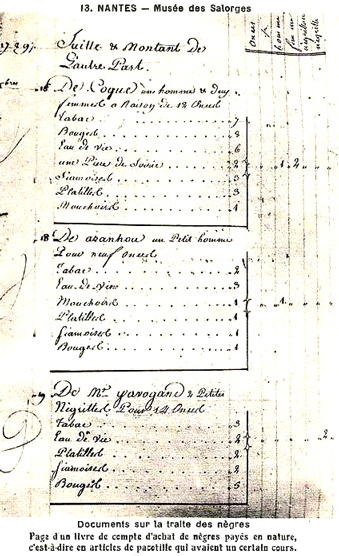 13. NANTES — Musée des Salorges
Onces
homme
femme
négrillon
négritte
1729.
Suitte & Montant de
L'autre Part.
15 De Coque un homme & deux
femmes a Raison de 12 Onces
Tabac 7
Bouges 8
Eau de vie 6
une Piece de Soirie 2 1 2
Siamoises 3
Platilles 3
Mouchoirs 4
18 De azanhou un Petit homme
Pour neuf Onces
Tabac 2
Eau de Vie 3
Mouchoirs 1 1
Platilles 1
Siamoises 1
Bouges 1
19 De Mr. 2 Petites
Négrittes Pour 14 Onces
Tabac 3
Eau de Vie 2 2
Platilles 2
Siamoises 2
Bouges 5
Documents sur la traite des nègres
Page d'un livre de compte d'achat de nègres payés en nature,
c'est-à-dire en articles de pacotille qui avaient un certain cours.